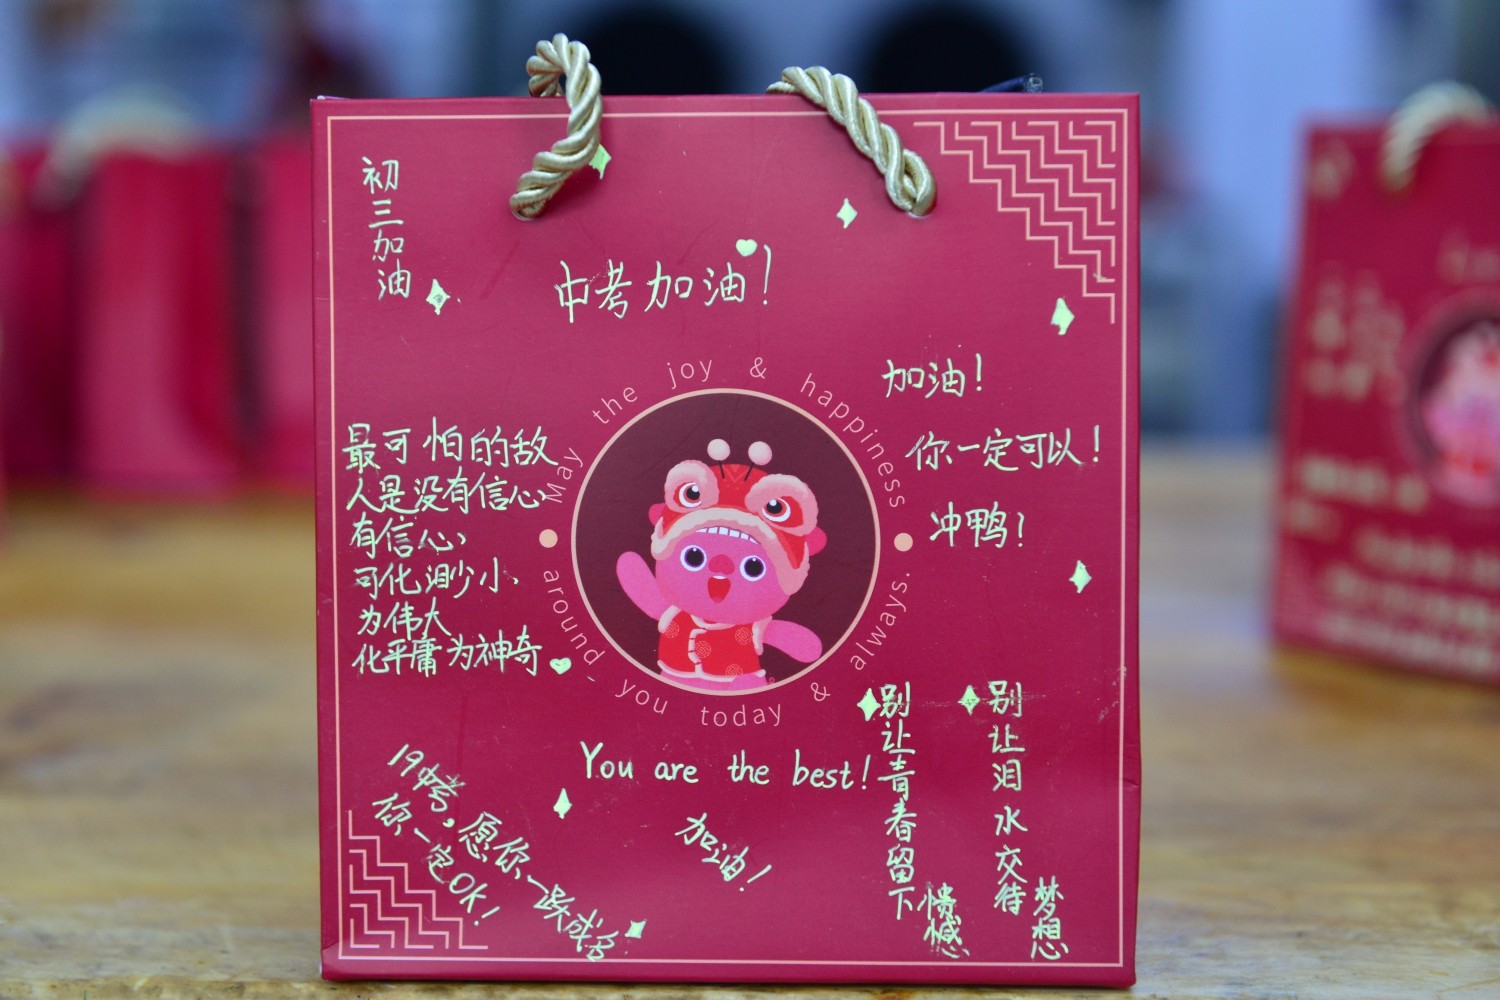 初三加油
中考加油!
加油!
你一定可以!
冲鸭!
最可怕的敌
人是没有信心
有信心
可化渺小
为伟大
化平庸为神奇
May the joy & happiness
around you today & always.
You are the best!
加油!
19中考,愿你一跃成名
你一定OK!
别让青春留下
别让泪水交待
梦想